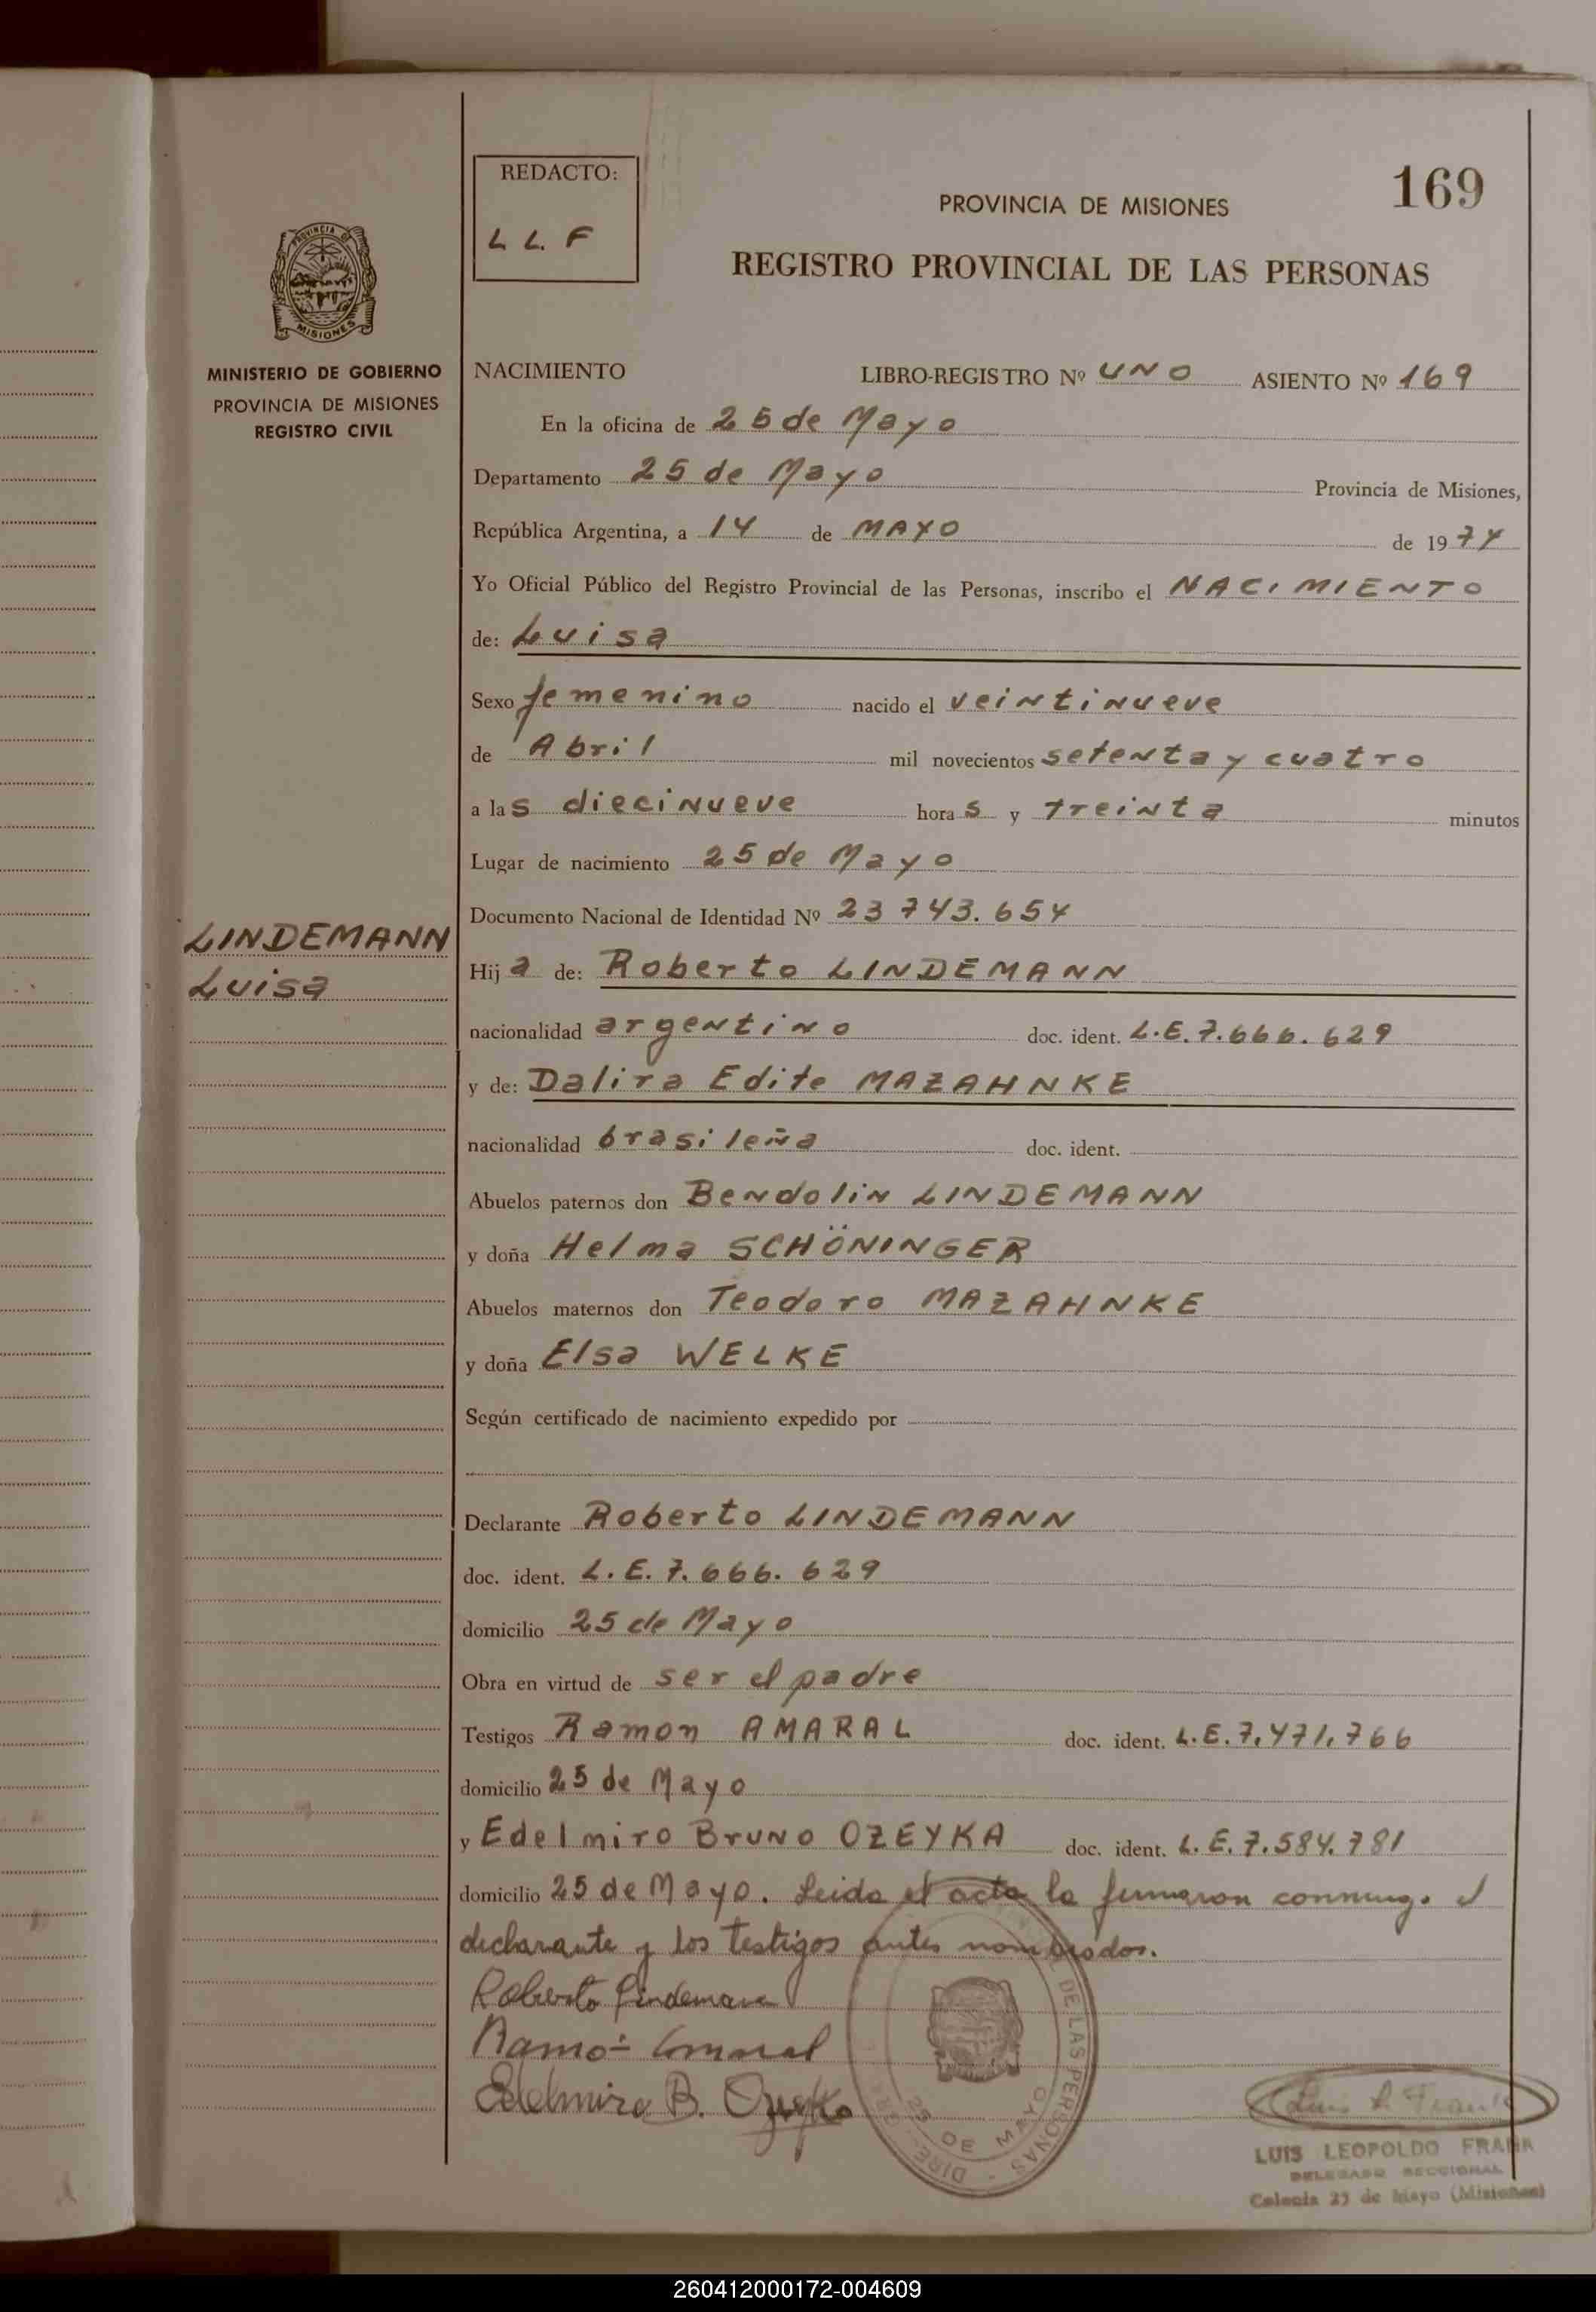 REDACTO:
L L. F
169
PROVINCIA DE MISIONES
REGISTRO PROVINCIAL DE LAS PERSONAS
PROVINCIA DE
MISIONES
MINISTERIO DE GOBIERNO
PROVINCIA DE MISIONES
REGISTRO CIVIL
NACIMIENTO LIBRO-REGISTRO Nº UNO ASIENTO Nº 169
En la oficina de 25 de Mayo
Departamento 25 de Mayo Provincia de Misiones,
República Argentina, a 14 de MAYO de 1974
Yo Oficial Público del Registro Provincial de las Personas, inscribo el NACIMIENTO
de: Luisa
Sexo femenino nacido el veintinueve
de Abril mil novecientos setenta y cuatro
a las diecinueve horas y treinta minutos
Lugar de nacimiento 25 de Mayo
Documento Nacional de Identidad Nº 23 743.654
LINDEMANN
Luisa
Hija de: Roberto LINDEMANN
nacionalidad argentino doc. ident. L.E.7.666.629
y de: Dalira Edite MAZAHNKE
nacionalidad brasileña doc. ident.
Abuelos paternos don Bendolin LINDEMANN
y doña Helma SCHÖNINGER
Abuelos maternos don Teodoro MAZAHNKE
y doña Elsa WELKE
Según certificado de nacimiento expedido por
Declarante Roberto LINDEMANN
doc. ident. L.E.7.666.629
domicilio 25 de Mayo
Obra en virtud de ser el padre
Testigos Ramon AMARAL doc. ident. L.E.7,471,766
domicilio 25 de Mayo
y Edelmiro Bruno OZEYKA doc. ident. L.E.7.584.781
domicilio 25 de Mayo. Leida el acta la firmaron conmigo el
declarante y los testigos antes nombrados.
Roberto Lindemann
Ramon Amaral
Edelmiro B. Ozeyka
DE LAS PERSONAS - DIRE
25 DE MAYO
Luis L. Frana
LUIS LEOPOLDO FRANA
DELEGADO SECCIONAL
Colonia 25 de Mayo (Misiones)
260412000172-004609